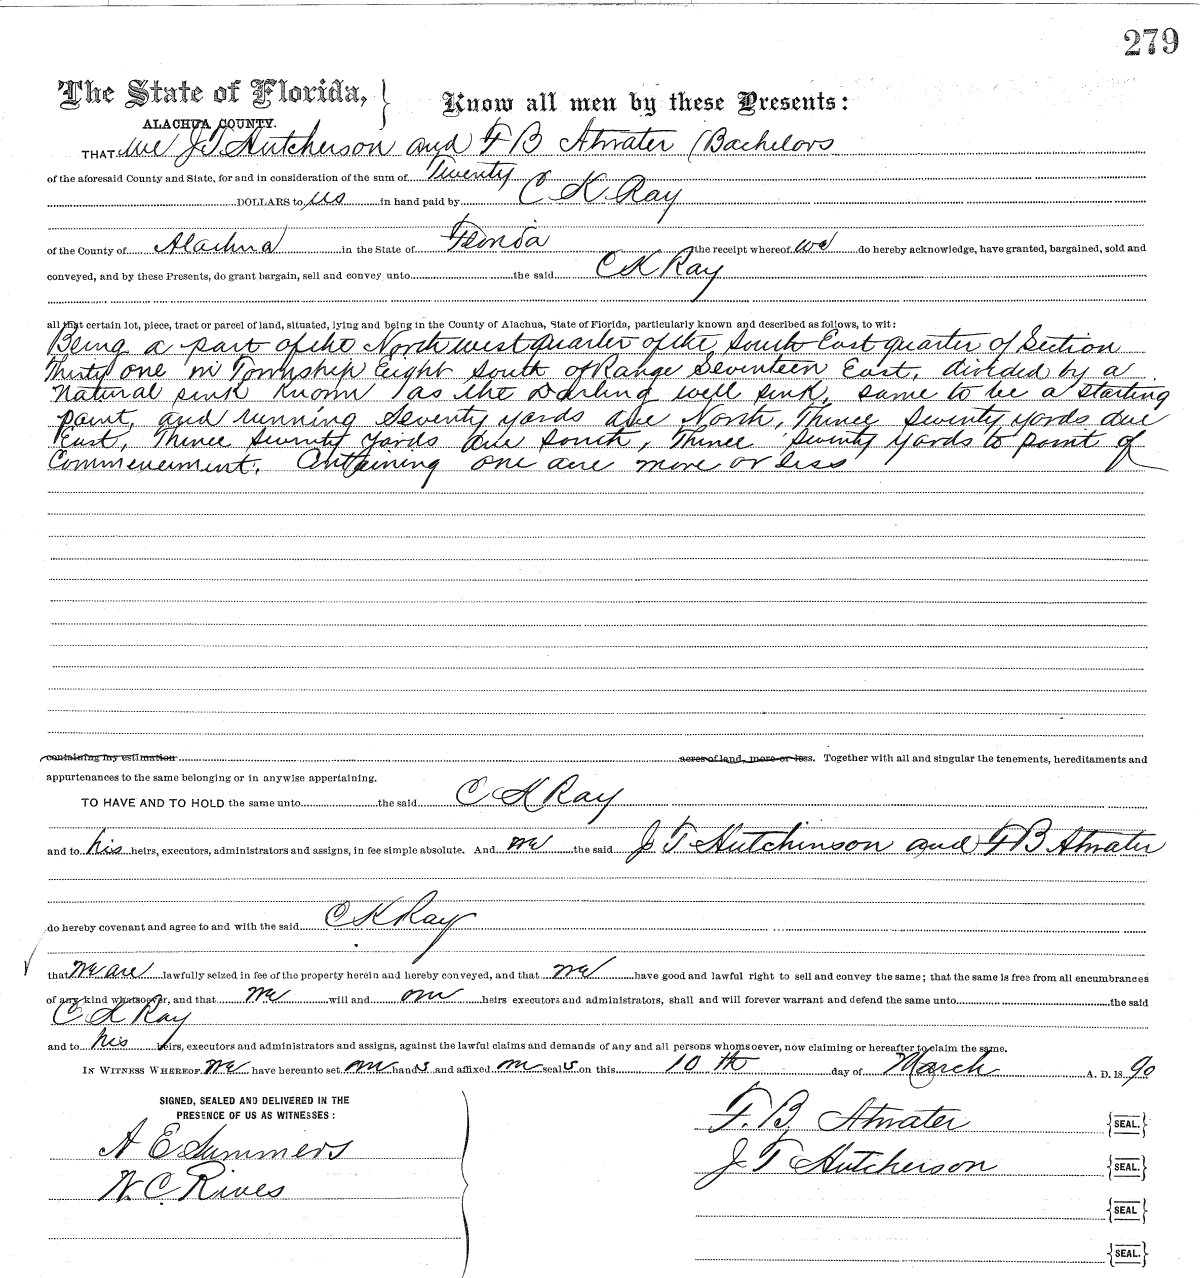 279
The State of Florida, } Know all men by these Presents:
ALACHUA COUNTY.
THAT we J T Hutcherson and F B Atwater (Bachelors
of the aforesaid County and State, for and in consideration of the sum of Twenty
DOLLARS to us in hand paid by C K Ray
of the County of Alachua in the State of Florida the receipt whereof we do hereby acknowledge, have granted, bargained, sold and
conveyed, and by these Presents, do grant bargain, sell and convey unto the said C K Ray
all that certain lot, piece, tract or parcel of land, situated, lying and being in the County of Alachua, State of Florida, particularly known and described as follows, to wit:
Being a part of the North west quarter of the South East quarter of Section
Thirty one in Township Eight South of Range Seventeen East, divided by a
Natural sink known as the Darling well sink, same to be a starting
point, and running Seventy yards due North, Thence Seventy yards due
East, Thence Seventy yards due South, Thence Seventy yards to point of
Commencement. Containing one acre more or less
containing my estimation acres of land, more or less. Together with all and singular the tenements, hereditaments and
appurtenances to the same belonging or in anywise appertaining.
TO HAVE AND TO HOLD the same unto the said C K Ray
and to his heirs, executors, administrators and assigns, in fee simple absolute. And we the said J T Hutchinson and F B Atwater
do hereby covenant and agree to and with the said C K Ray
that we are lawfully seized in fee of the property herein and hereby conveyed, and that we have good and lawful right to sell and convey the same; that the same is free from all encumbrances
of any kind whatsoever, and that we will and our heirs executors and administrators, shall and will forever warrant and defend the same unto the said
C K Ray
and to his heirs, executors and administrators and assigns, against the lawful claims and demands of any and all persons whomsoever, now claiming or hereafter to claim the same.
IN WITNESS WHEREOF we have hereunto set our hands and affixed our seals on this 10 th day of March A. D. 18 90
SIGNED, SEALED AND DELIVERED IN THE
PRESENCE OF US AS WITNESSES:
F. B. Atwater {SEAL.}
A E Summers
J T Hutcherson {SEAL.}
N. C Rives
{SEAL}
{SEAL.}